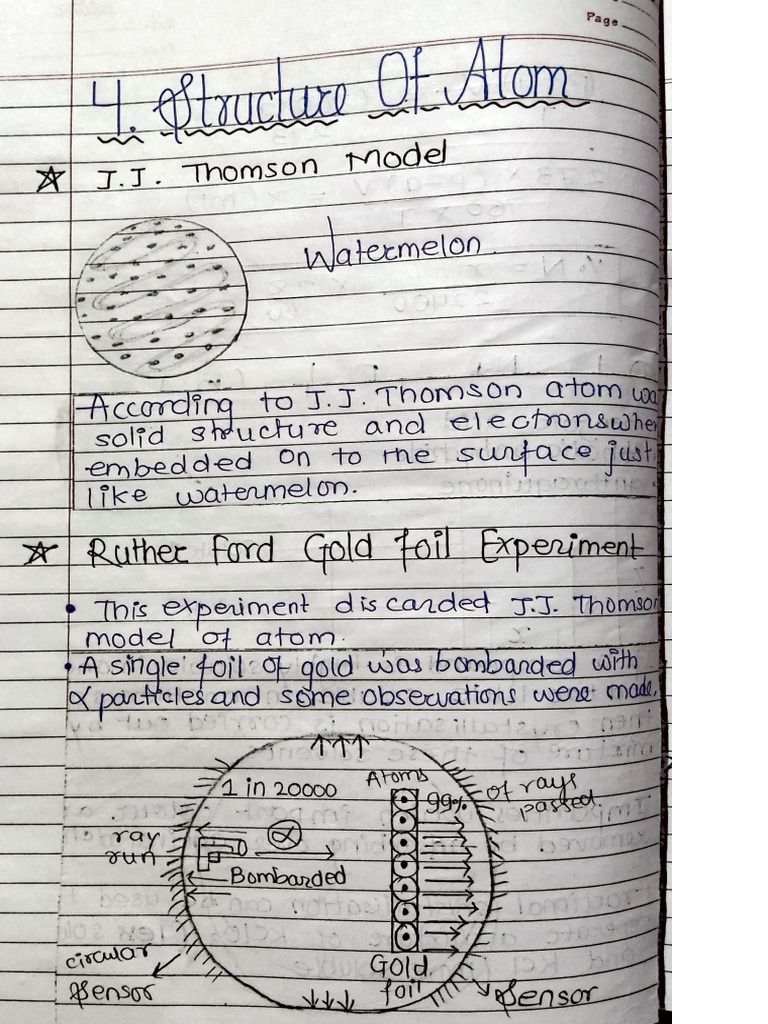 Page
4. Structure Of Atom
☆ J.J. Thomson Model
Watermelon
According to J.J. Thomson atom wa
solid structure and electrons wher
embedded on to the surface just
like watermelon.
☆ Ruther Ford Gold foil Experiment
• This experiment discarded J.J. Thomson
model of atom.
• A single foil of gold was bombarded with
α particles and some observations were made.
↑↑↑
1 in 20000
Atoms
99%
of rays
passed.
ray
run
α
Bombarded
circular
Sensor
Gold
foil
Sensor